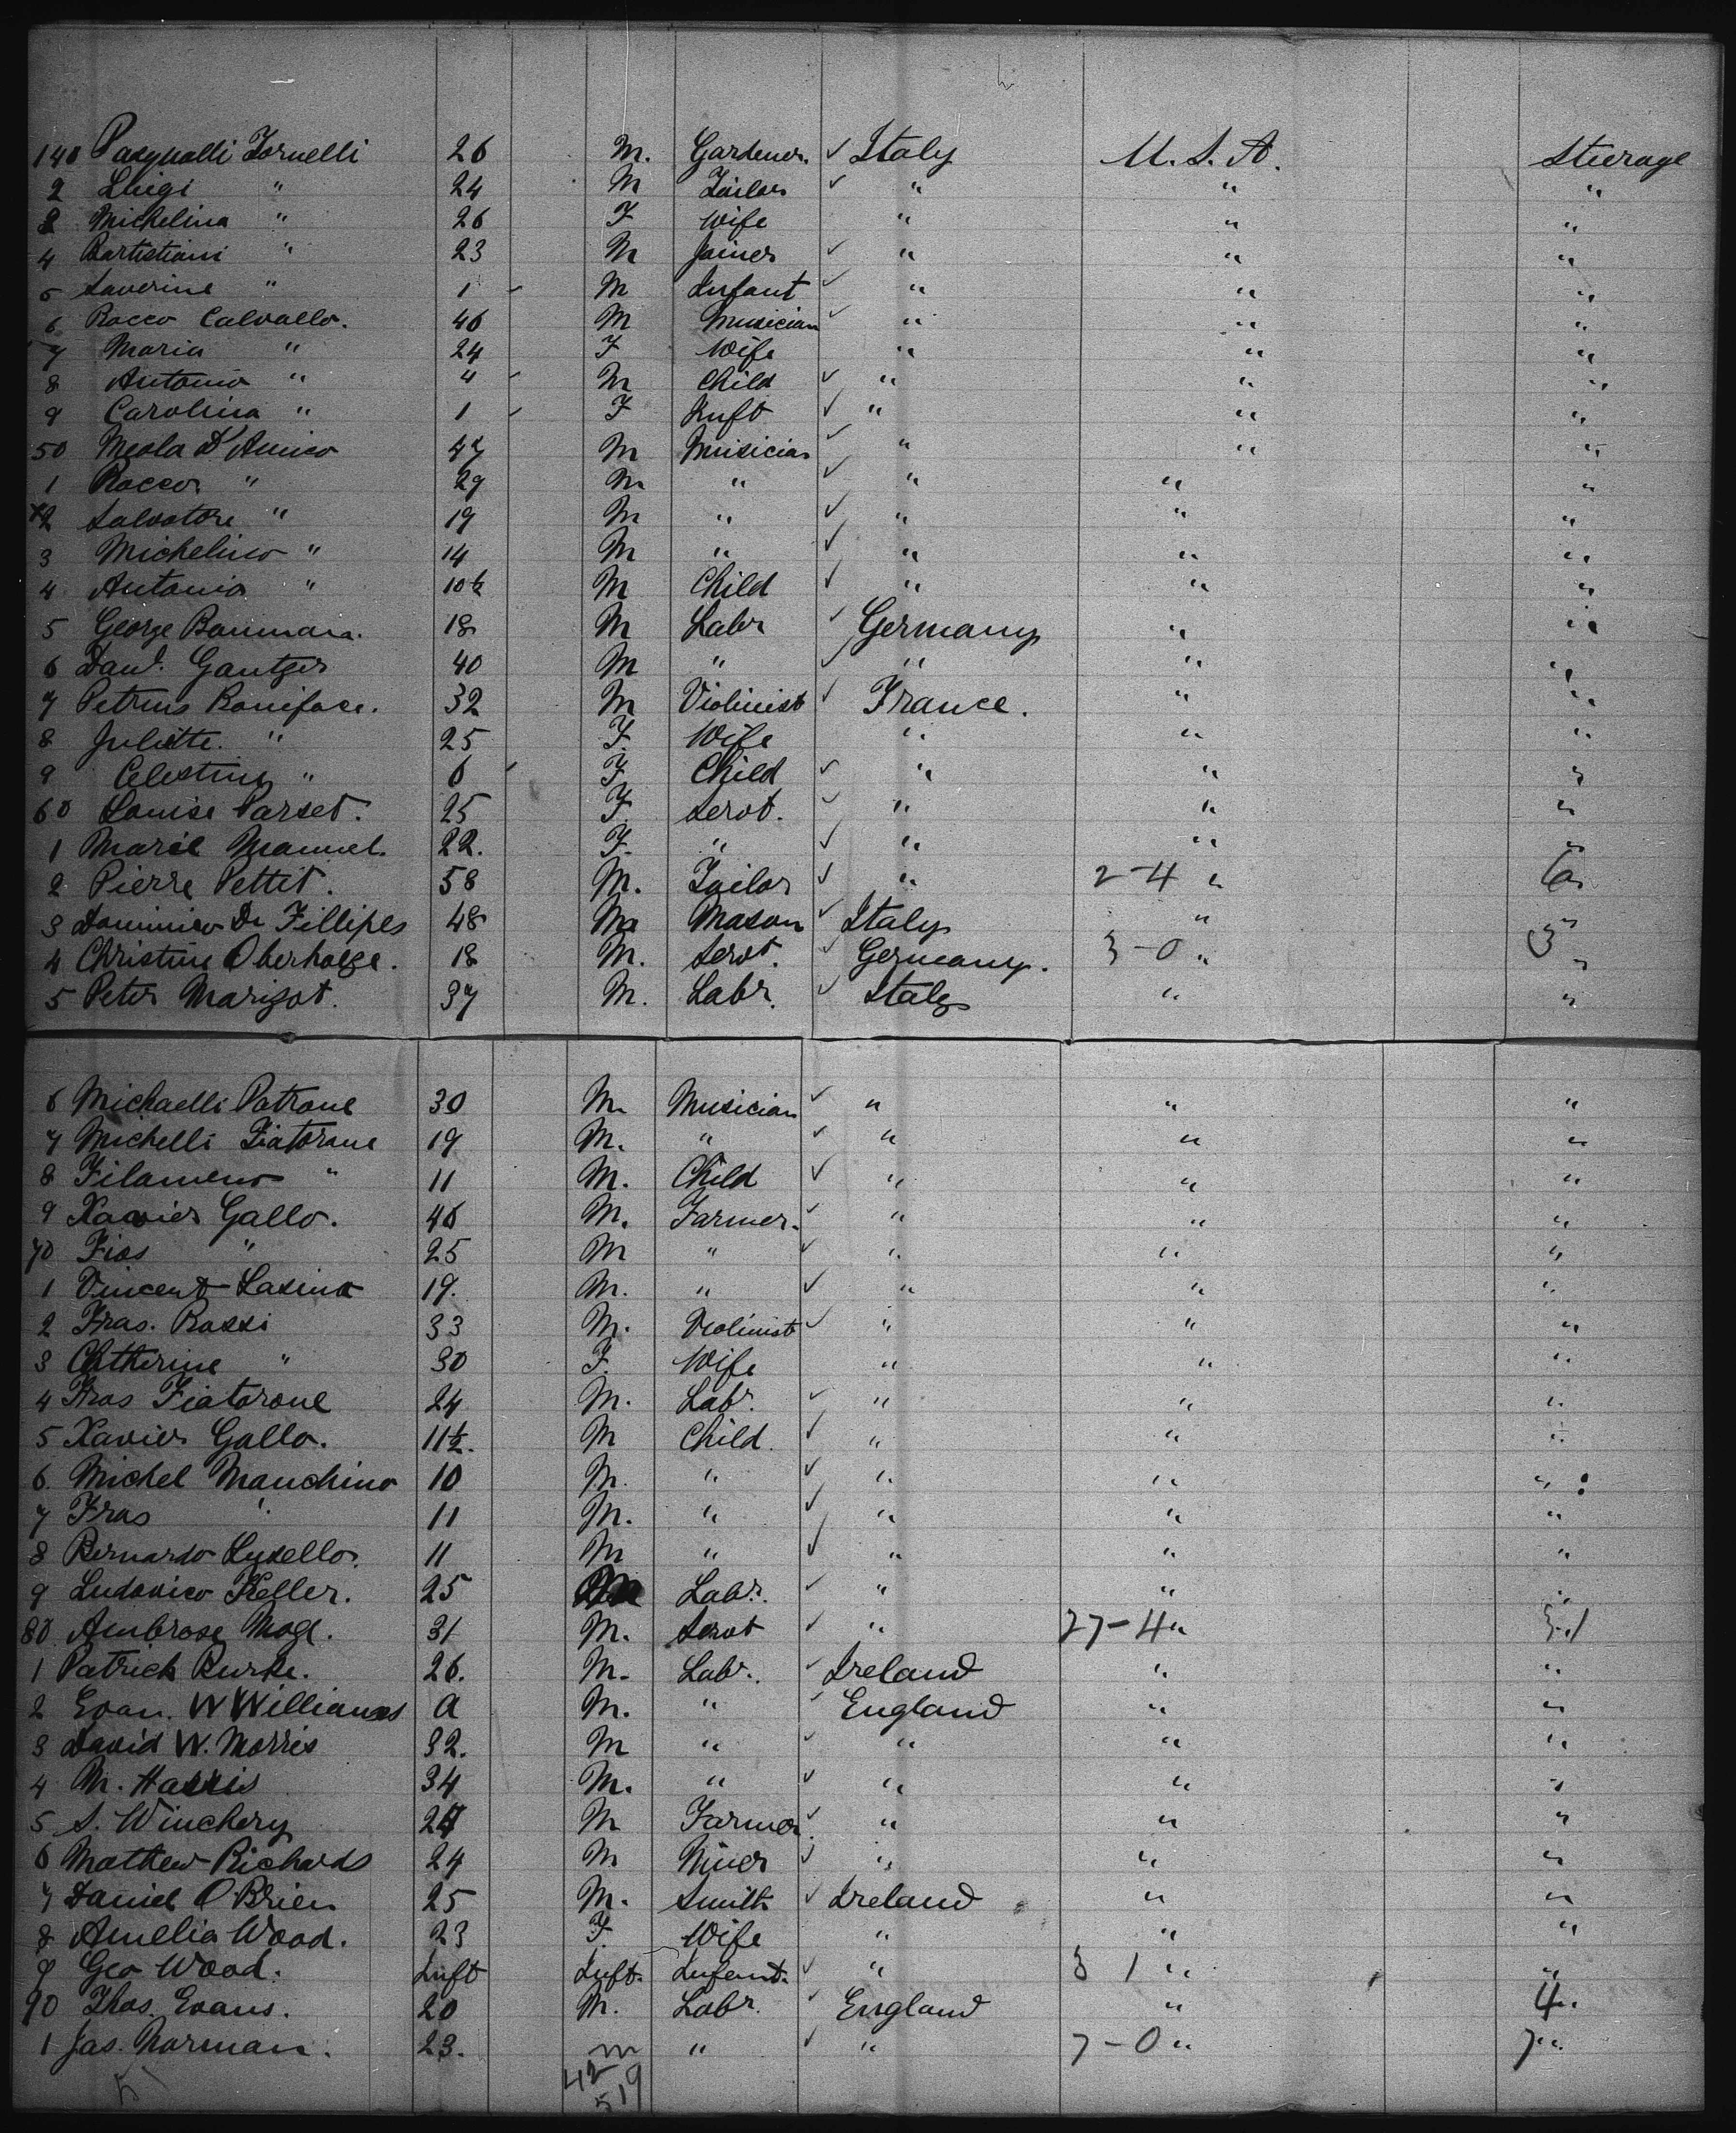 140 Pasqualli Tornelli 26 M. Gardener. ✓ Italy U. S. A. Steerage
2 Luigi " 24 M Tailor ✓ " " "
3 Michelina " 26 F Wife " " "
4 Bartistiani " 23 M Joiner ✓ " " "
5 Saverine " 1 - M Infant ✓ " " "
6 Rocco Calvallo. 46 M Musician ✓ " " "
7 Maria " 24 F Wife " " "
8 Antonio " 4 - M Child ✓ " " "
9 Carolina " 1 - F Inft ✓ " " "
50 Meola D'Amico 47 M Musician ✓ " " "
1 Rocco " 29 M " ✓ " " "
2 Salvatore " 19 M " ✓ " " "
3 Michelino " 14 M " ✓ " " "
4 Antonio " 10½ M Child ✓ " " "
5 George Bauman. 18 M Labr ✓ Germany " "
6 Danl. Gantger 40 M " ✓ " " "
7 Petrus Boniface. 32 M Violinist ✓ France. " "
8 Juliette. " 25 F. Wife " " "
9 Celestine " 6 - F. Child ✓ " " "
60 Louise Parset. 25 F. Servt. ✓ " " "
1 Marie Manuel. 22. F. " ✓ " " "
2 Pierre Pettit. 58 M. Tailor ✓ " 2-4 "
3 Dominico De Fillipes 48 M Mason ✓ Italy " "
4 Christine Oberholge. 18 M. Servt. ✓ Germany. 3-0 " 3 "
5 Peter Marigot. 37 M. Labr. ✓ Italy " "
6 Michaelli Patrone 30 M. Musician ✓ " " "
7 Michelli Fiatorone 19 M. " ✓ " " "
8 Filameno " 11 M. Child ✓ " " "
9 Xavier Gallo. 46 M. Farmer. ✓ " " "
70 Fios " 25 M " ✓ " " "
1 Vincent Lasino 19. M. " ✓ " " "
2 Fras. Rossi 33 M. Violinist ✓ " " "
3 Catherine " 30 F. Wife " " "
4 Fras Fiatorone 24 M. Labr. ✓ " " "
5 Xavier Gallo. 11½. M Child. ✓ " " "
6. Michel Manchino 10 M. " ✓ " " "
7 Fras " 11 M. " ✓ " " "
8 Bernardo Lusello. 11 M " ✓ " " "
9 Ludovico Keller. 25 M Labr. ✓ " " "
80 Ambrose Moge. 31 M. Servt ✓ " 27-4 "
1 Patrick Burke. 26. M. Labr. ✓ Ireland " "
2 Evan. W Williams A M. " ✓ England " "
3 David W. Morris 32. M " ✓ " " "
4 M. Harris 34 M. " ✓ " " "
5 S. Winchery 24 M Farmer. ✓ " " "
6 Mathew Richards 24 M Miner ✓ " " "
7 Daniel O'Brien 25 M. Smith ✓ Ireland " "
8 Amelia Wood. 23 F. Wife " " "
9 Geo Wood. Inft Inft. Infant. ✓ " 3 1 " "
90 Thos. Evans. 20 M. Labr. ✓ England " 4 "
1 Jas. Norman. 23. m " ✓ " 7-0 " 7 "
42
519